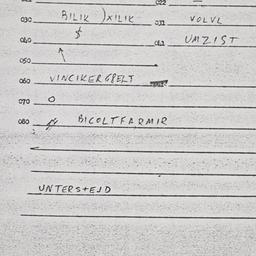 030 BILIK XILIK 031 VOLVL
040 $ 041 UMZIST
050
060 VINCIKERGBELT
070 O
080 BICOLTFARMIR
UNTERSTEJD